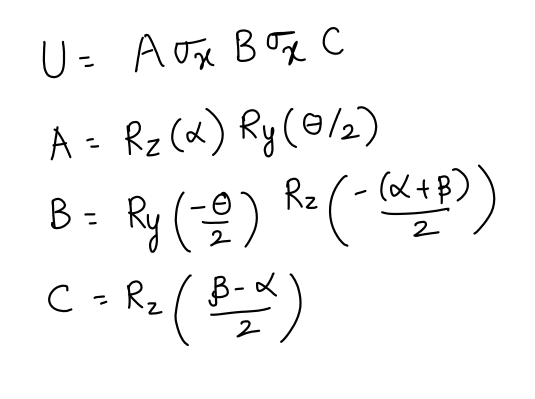 U = A σx B σx C
A = Rz(α) Ry(θ/2)
B = Ry(-θ/2) Rz(-(α+β)/2)
C = Rz((β-α)/2)